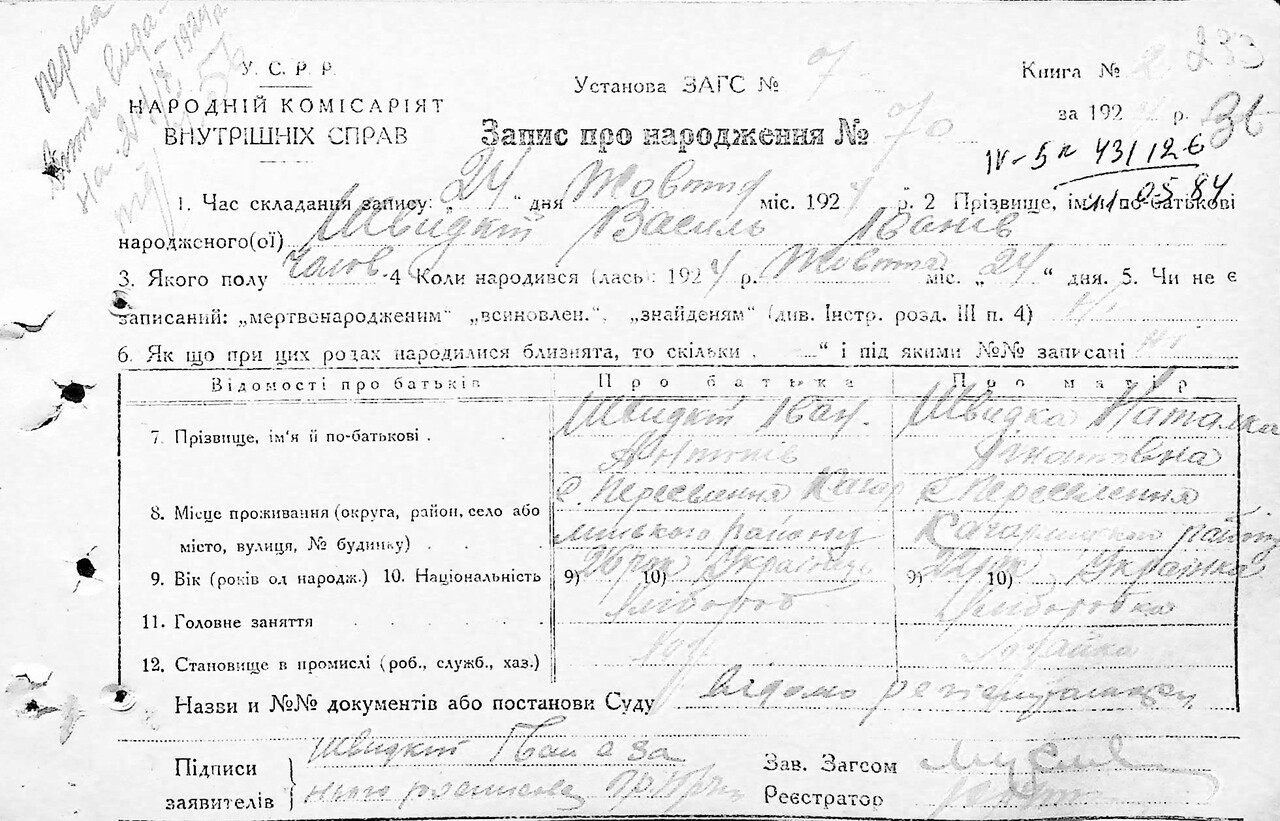 перша
У. С. Р. Р.
НАРОДНІЙ КОМІСАРІЯТ
ВНУТРІШНІХ СПРАВ
Установа ЗАГС № 7
Книга № 2 233
за 192 4 р. 36
Запис про народження № 70
IV-5п 431126
11 05 84
1. Час складання запису: „24“ дня Жовтня міс. 1924 р. 2 Прізвище, ім'я по-батькові
народженого(ої) Швидкій Василь Іванів
3. Якого полу Чолов. 4 Коли народився (лась): 1924 р. Жовтня міс. „24“ дня. 5. Чи не є
записаний: „мертвонародженим“ „всиновлен.“, „знайденям“ (див. Інстр. розд. III п. 4) Ні
6. Як що при цих родах народилися близнята, то скільки . „ “ і під якими №№ записані Ні
Відомості про батьків Про батька Про матір
7. Прізвище, ім'я й по-батькові . Швидкій Іван. Швидка Наталка
Антипів Гнатівна
8. Місце проживання (округа, район, село або с. Пересення с. Переселення
місто, вулиця, № будинку) . . району Кагарлицького району
9. Вік (років од народж.) 10. Національність 9) 26 рік 10) Українець 9) 22 рік 10) Українка
11. Головне заняття . . . . Хлібороб Хліборобка
12. Становище в промислі (роб., служб., хаз.)
Назви и №№ документів або постанови Суду Відомо
Підписи Швидкій Іван а за
заявителів нього
Зав. Загсом
Реєстратор